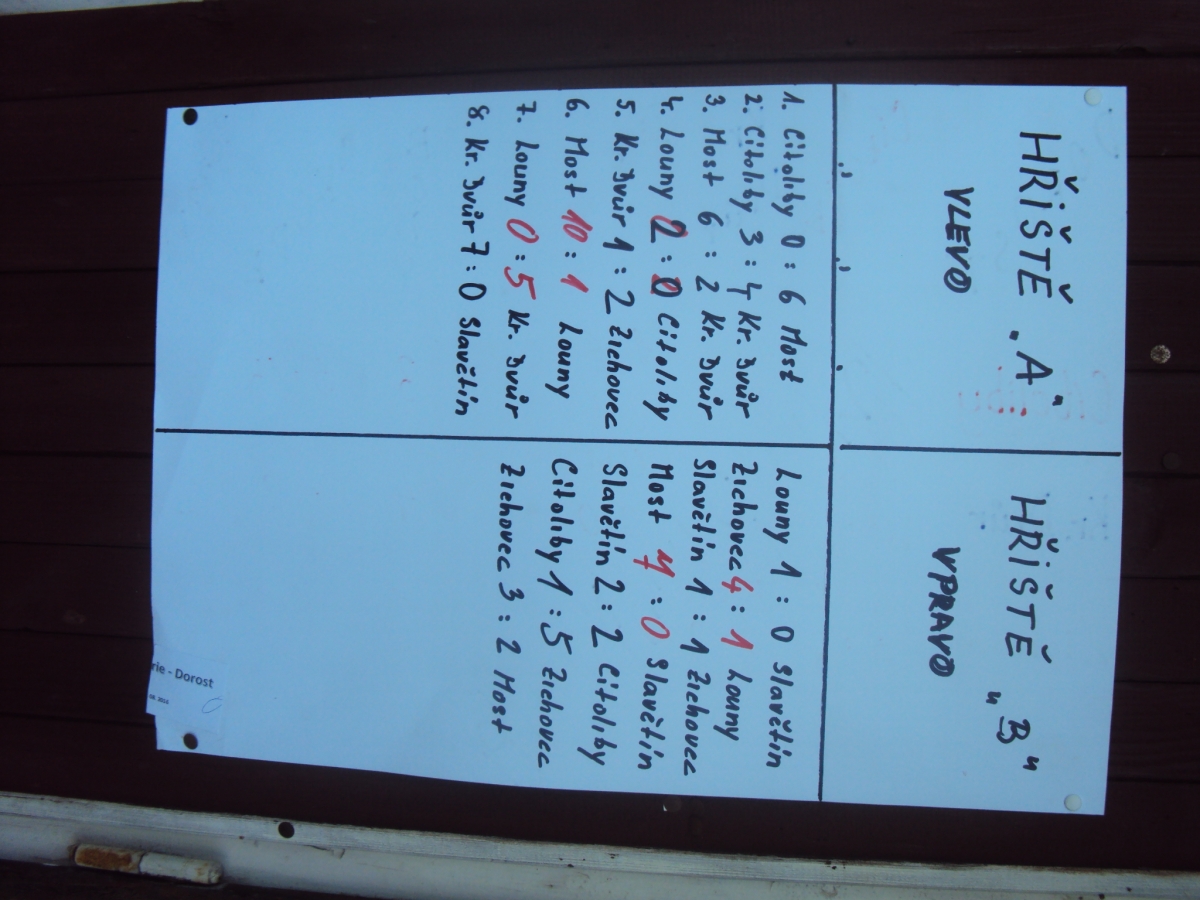 HŘIŠTĚ „A"
VLEVO
HŘIŠTĚ „B"
VPRAVO
1. Citoliby 0 : 6 Most
2. Citoliby 3 : 4 Kr. Dvůr
3. Most 6 : 2 Kr. Dvůr
4. Louny 2 : 0 Citoliby
5. Kr. Dvůr 1 : 2 Zichovec
6. Most 10 : 1 Louny
7. Louny 0 : 5 Kr. Dvůr
8. Kr. Dvůr 7 : 0 Slavětín
Louny 1 : 0 Slavětín
Zichovec 4 : 1 Louny
Slavětín 1 : 1 Zichovec
Most 7 : 0 Slavětín
Slavětín 2 : 2 Citoliby
Citoliby 1 : 5 Zichovec
Zichovec 3 : 2 Most
rie - Dorost